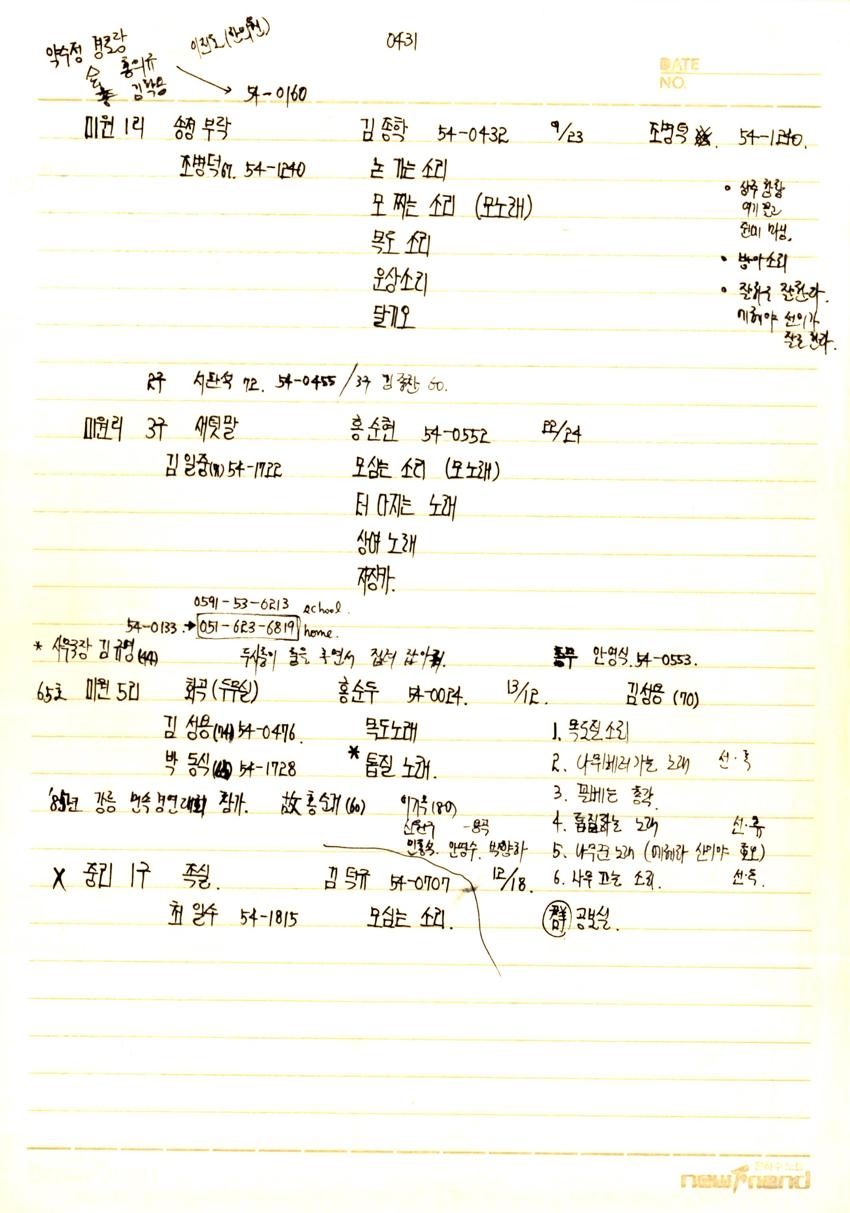 0431
약수정 경로당
홍의규
김학용
54-0160
DATE
NO.
미원 1리 송정 부락 김종학 54-0432 9/23 조병덕 54-1240.
조병덕 67. 54-1240 논 가는 소리
모 찌는 소리 (모노래)
목도 소리
운상소리
달기오
• 상주 함창
• 방아소리
• 잘하구 잘한다.
에헤야 선이가
잘도 한다.
2구 72. 54-0455 / 3구 김종찬 60.
미원리 3구 새팃말 홍순현 54-0552 22/24
김일중(71) 54-1722 모심는 소리 (모노래)
터 다지는 노래
상여 노래
자장가.
0591-53-6213 school.
54-0133. → 051-623-6819 home.
* 사무국장 김규영(44) 총무 안영식. 54-0553.
65호 미원 5리 화곡 (두무실) 홍순두 54-0024. 13/12. 김성용 (70)
김성용(74) 54-0476. 목도노래
박동식 54-1728 * 톱질 노래.
1. 목도질 소리
2. 나무베러가는 노래 선·독
3. 꼴베는 총각
4. 톱질하는 노래 선·독
5. 나무꾼 노래 (에헤라 산이야 호오)
6. 나무 끄는 소리. 선·독.
'85년 강릉 민속경연대회 참가. 故 홍순개 (60) 이기옥 (80)
안영수. 박양하
X 중리 1구 족실. 김덕규 54-0707 12/18.
최일수 54-1815 모심는 소리.
群 공보실.
은하수 노트
new friend